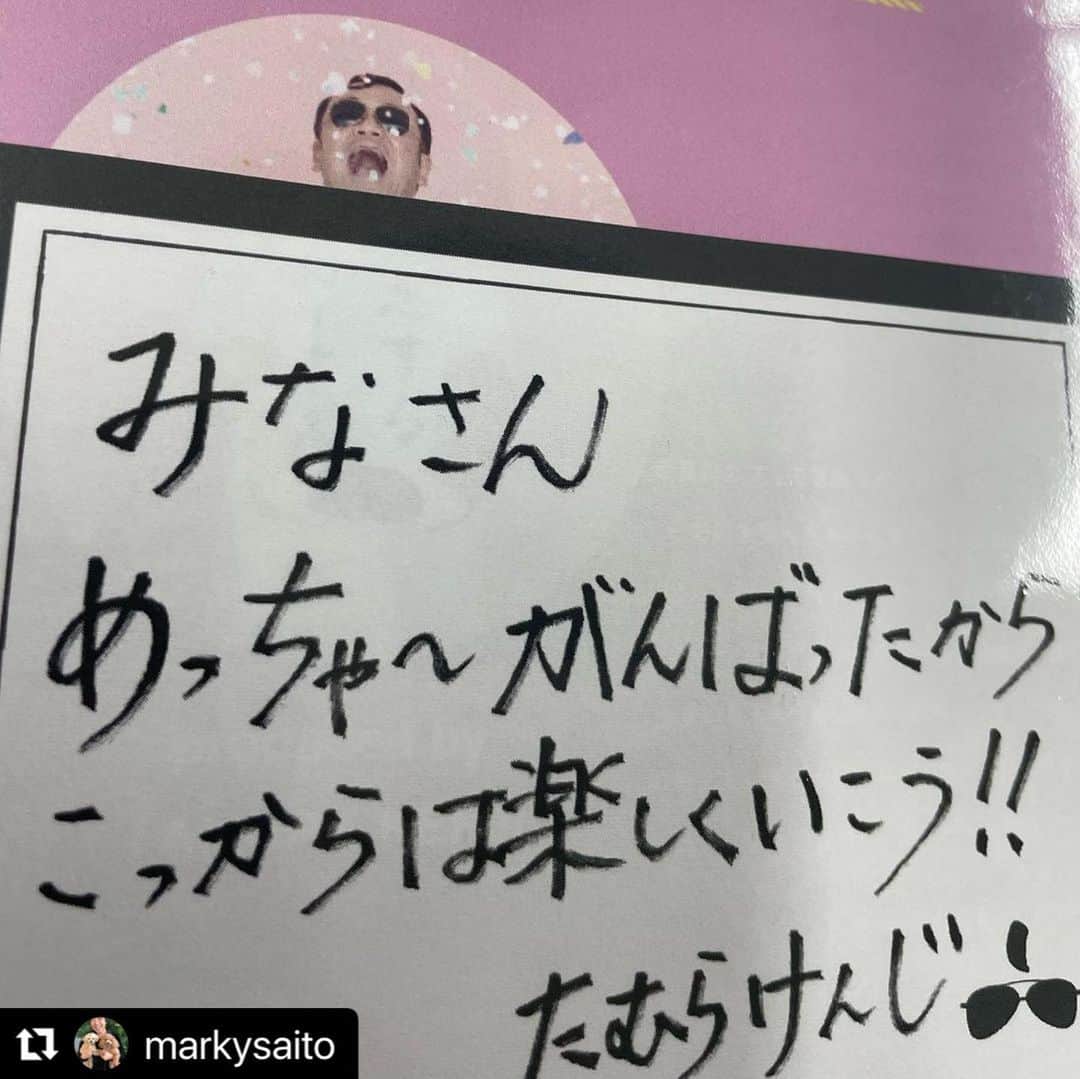 みなさん
めっちゃ〜がんばったから
こっからは楽しくいこう!!
たむらけんじ
markysaito